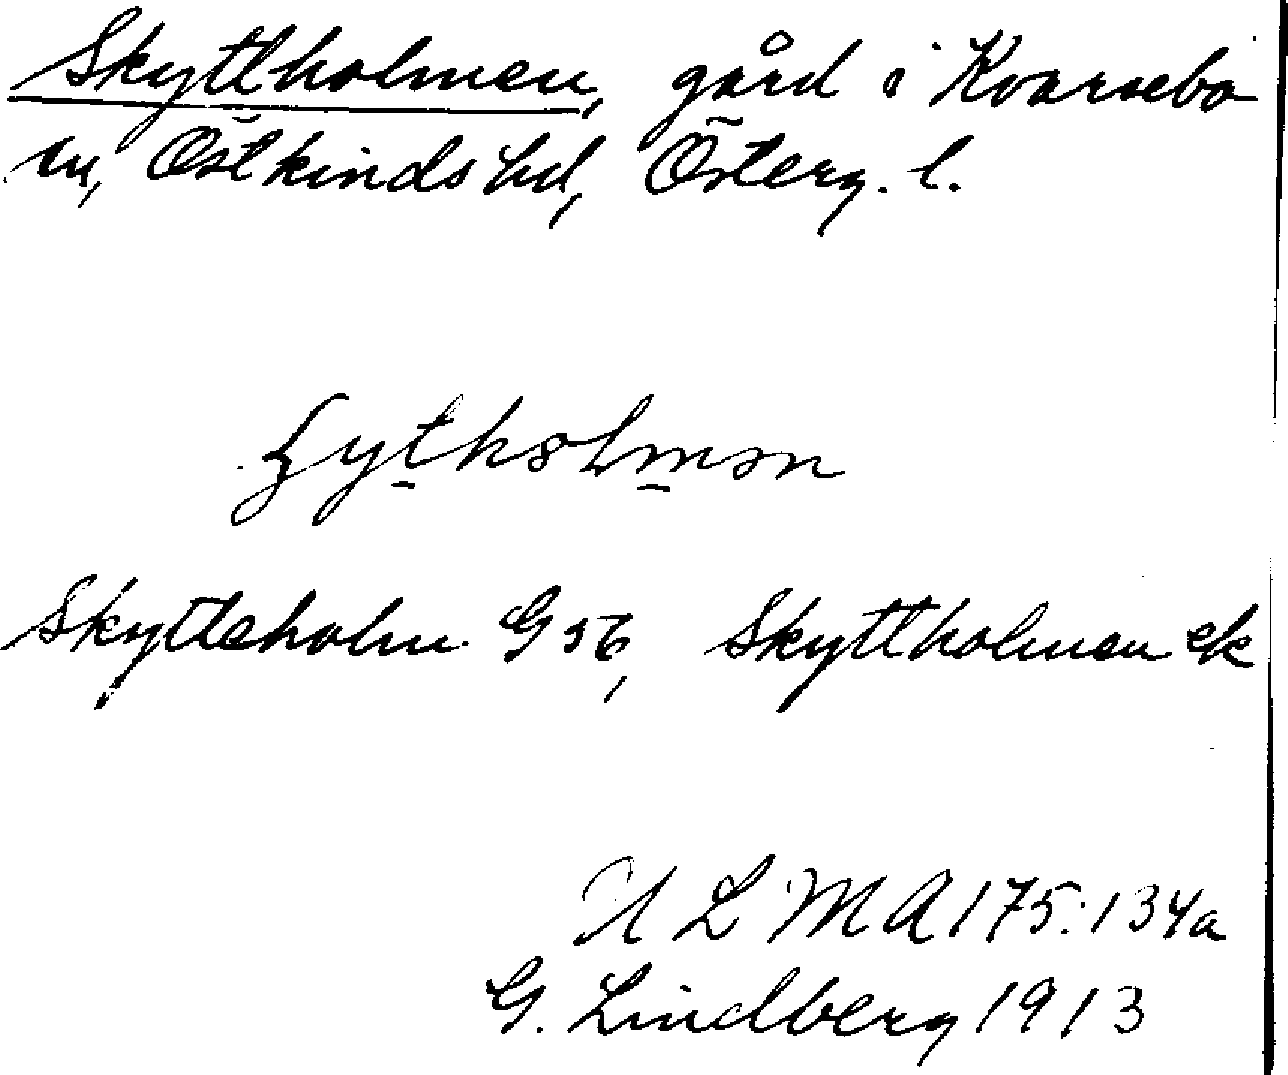 Skyttholmen, gård i Kvarsebo
sn, Östkinds hd, Österg. l.
Skytteholm G 56, Skyttholmen ek
ULMA 175:134a
G. Lindberg 1913